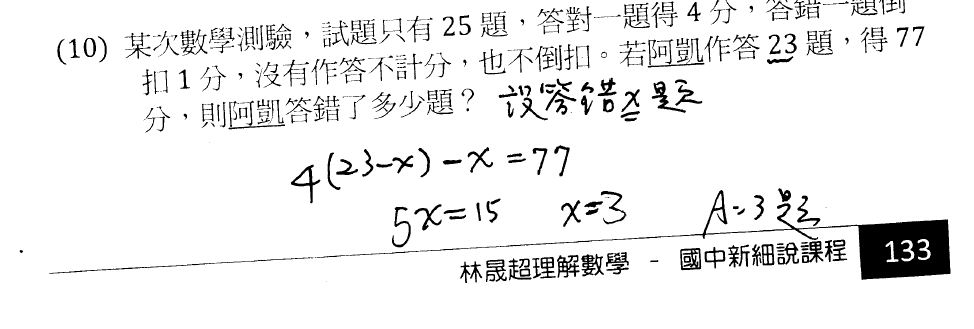 (10) 某次數學測驗，試題只有 25 題，答對一題得 4 分，答錯一題倒
扣 1 分，沒有作答不計分，也不倒扣。若阿凱作答 23 題，得 77
分，則阿凱答錯了多少題？ 設答錯 x 題
4(23-x) - x = 77
5x = 15 x = 3 A：3 題
林晟超理解數學 - 國中新細說課程 133